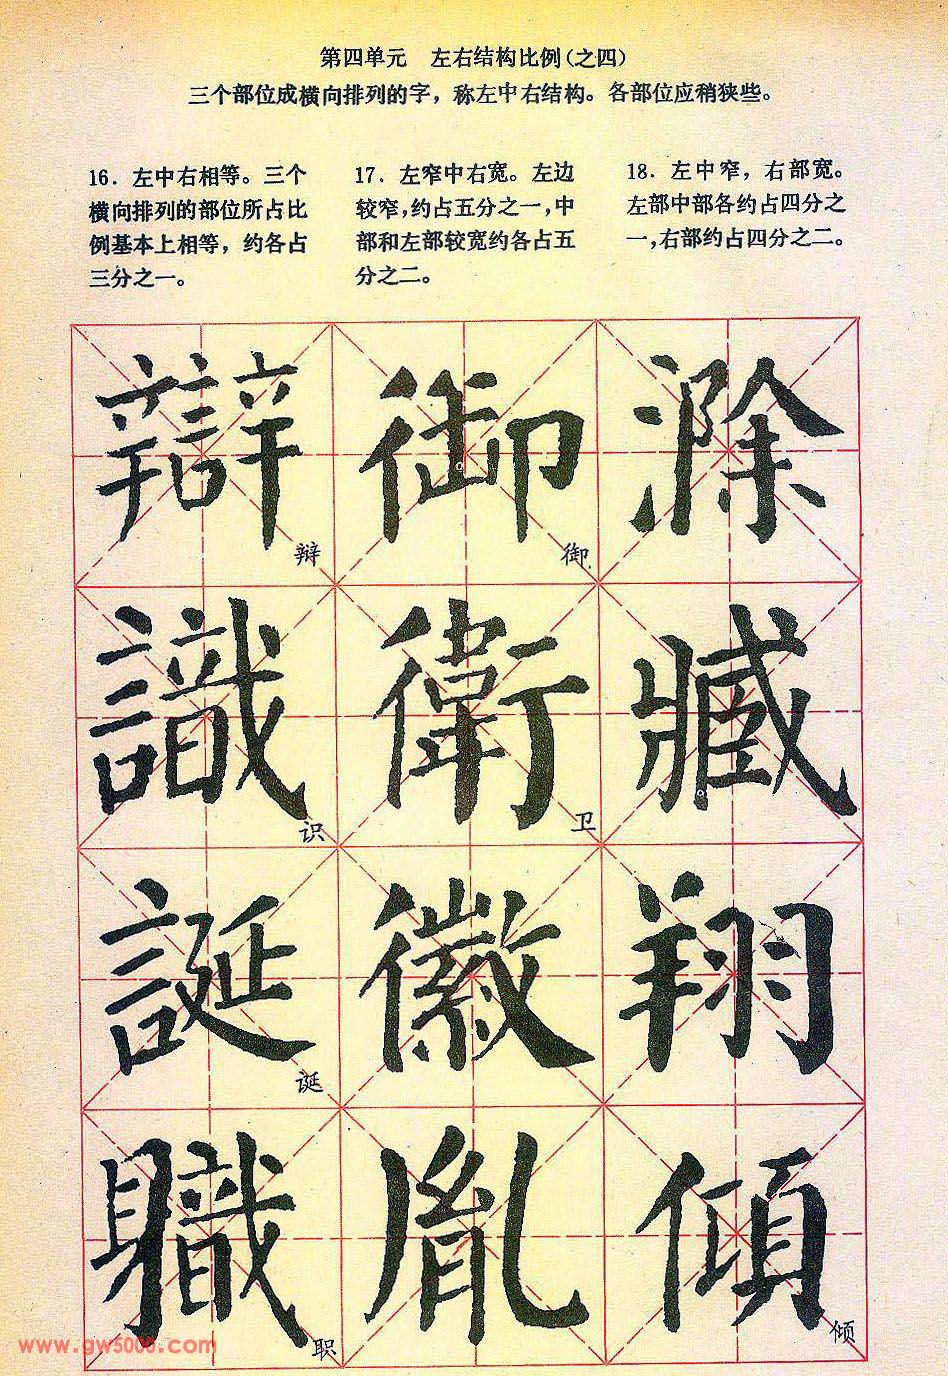 第四单元 左右结构比例(之四)
三个部位成横向排列的字，称左中右结构。各部位应稍狭些。
16. 左中右相等。三个
横向排列的部位所占比
例基本上相等，约各占
三分之一。
17. 左窄中右宽。左边
较窄，约占五分之一，中
部和左部较宽约各占五
分之二。
18. 左中窄，右部宽。
左部中部各约占四分之
一，右部约占四分之二。
辯 御 滁
辩 御
識 衛 臧
识 卫
誕 徽 翔
诞
職 胤 傾
职 倾
www.gw5000.com